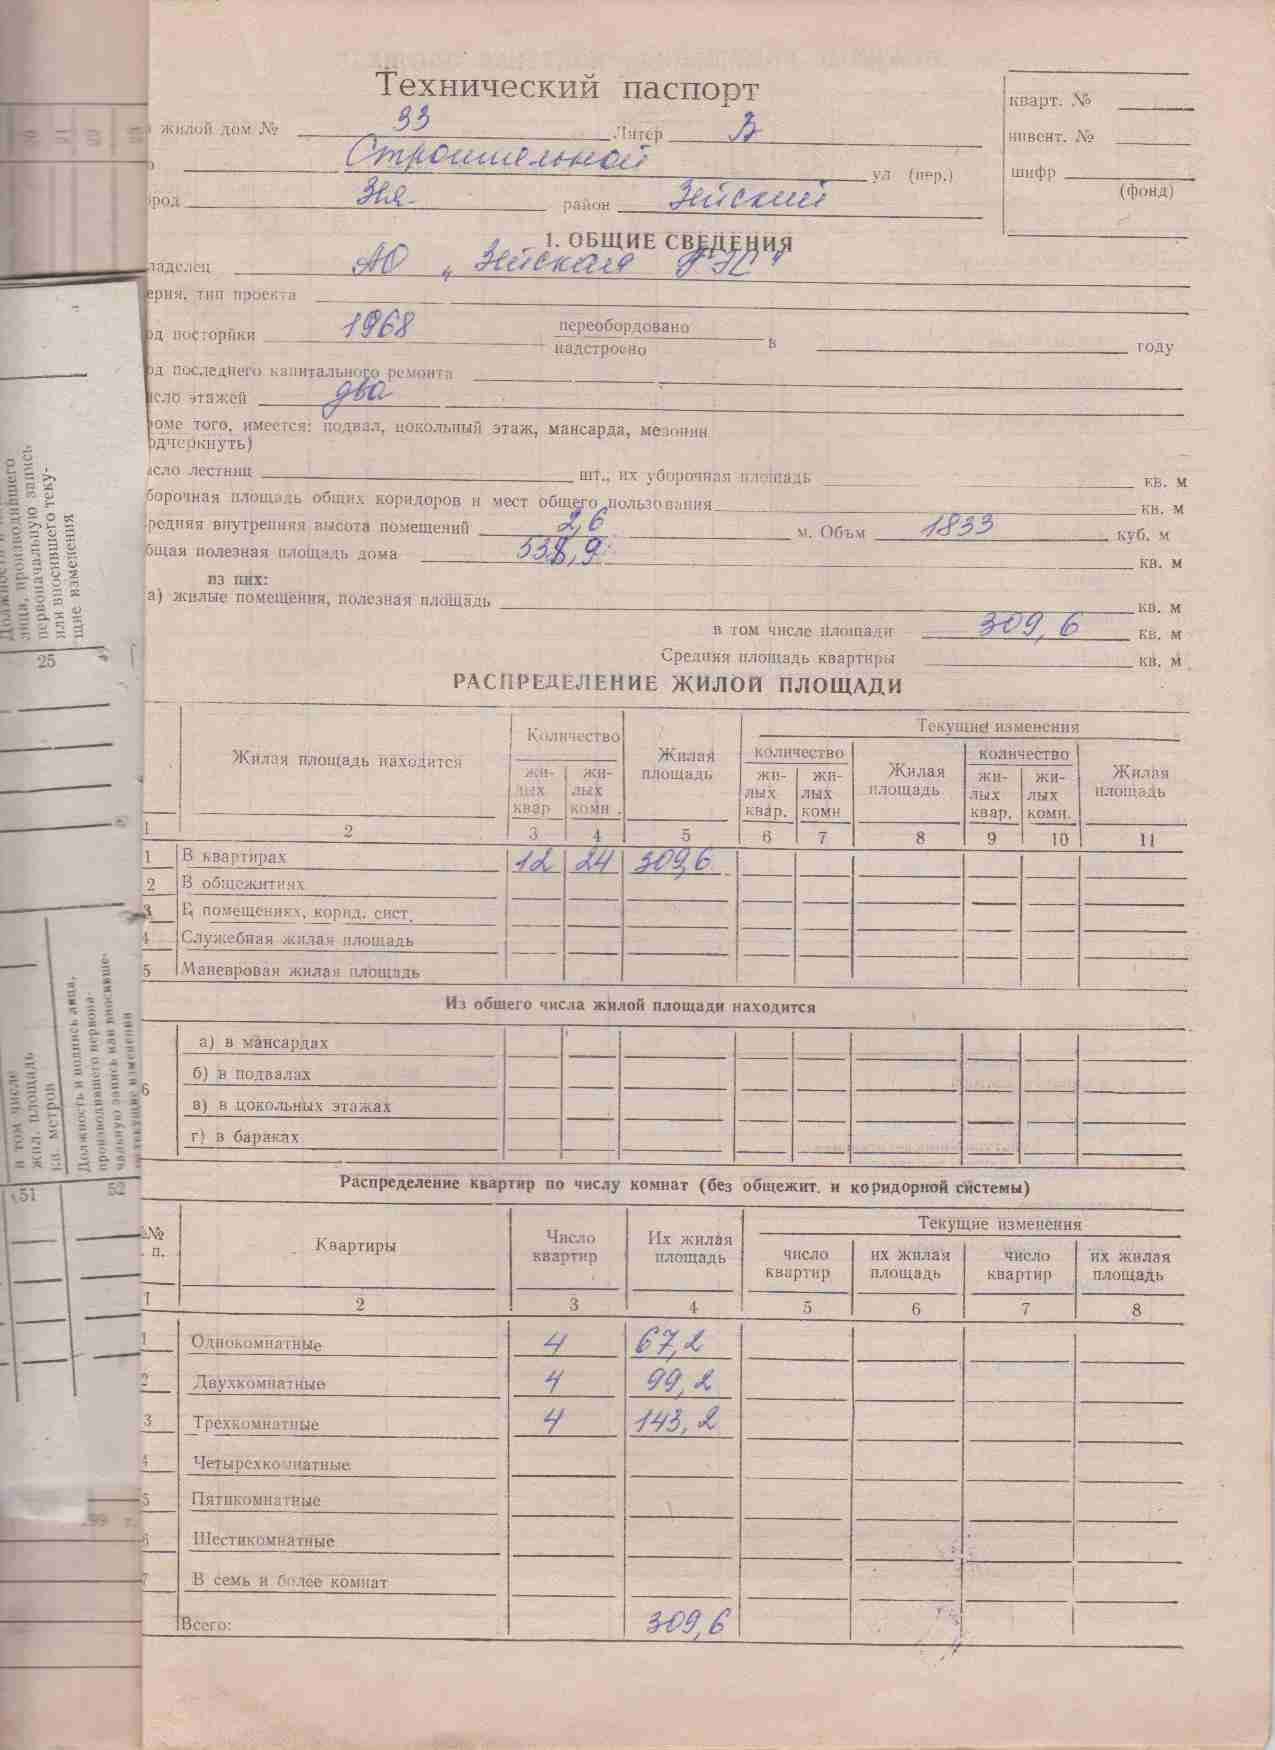 Технический паспорт
кварт. №
жилой дом № 33 Литер В
инвент. №
Строительной ул (пер.)
шифр
(фонд)
род Зея район Зейский
1. ОБЩИЕ СВЕДЕНИЯ
ладелец АО „Зейская ГЭС"
ерия, тип проекта
од посторйки 1968 переобордовано
надстроено в году
од последнего капитального ремонта
исло этажей два
роме того, имеется: подвал, цокольный этаж, мансарда, мезонин
одчеркнуть)
исло лестниц шт., их уборочная площадь кв. м
борочная площадь общих коридоров и мест общего пользования кв. м
редняя внутренняя высота помещений 2,6 м. Объм 1833 куб. м
бщая полезная площадь дома 538,9 кв. м
из них:
а) жилые помещения, полезная площадь кв. м
в том числе площади 309,6 кв. м
Средняя площадь квартиры кв. м
РАСПРЕДЕЛЕНИЕ ЖИЛОЙ ПЛОЩАДИ
Жилая площадь находится Количество Жилая площадь Текущие изменения
жилых квар жилых комн. количество Жилая площадь количество Жилая площадь
жилых квар. жилых комн жилых квар. жилых комн.
1 2 3 4 5 6 7 8 9 10 11
1 В квартирах 12 24 309,6
2 В общежитиях
3 В помещениях, корид. сист.
4 Служебная жилая площадь
5 Маневровая жилая площадь
Из общего числа жилой площади находится
а) в мансардах
б) в подвалах
6
в) в цокольных этажах
г) в бараках
Распределение квартир по числу комнат (без общежит. и коридорной системы)
№№ п. Квартиры Число квартир Их жилая площадь Текущие изменения
число квартир их жилая площадь число квартир их жилая площадь
1 2 3 4 5 6 7 8
1 Однокомнатные 4 67,2
2 Двухкомнатные 4 99,2
3 Трехкомнатные 4 143,2
4 Четырехкомнатные
5 Пятикомнатные
6 Шестикомнатные
7 В семь и более комнат
Всего: 309,6
лица, производившего
первоначальную запись
или вносившего теку-
щие изменения
25
в том числе
жил. площадь
кв. метров
Должность и подпись лица,
производившего первона-
чальную запись или вносивше-
го текущие изменения
51
199 г.